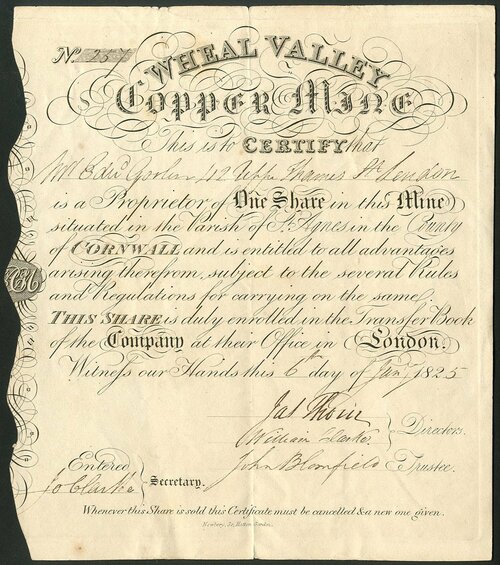 No. 257
WHEAL VALLEY
Copper Mine
This is to CERTIFY that
Mr. Edwd. 42 Upper Thames St. London
is a Proprietor of One Share in this Mine
situated in the Parish of St. Agnes in the County
of CORNWALL and is entitled to all advantages
arising therefrom, subject to the several Rules
and Regulations for carrying on the same.
THIS SHARE is duly enrolled in the Transfer Book
of the Company at their Office in London.
Witness our Hands this 6th day of Jany. 1825
Jas
William Clarke } Directors.
John Blomfield Trustee.
Entered
Jo Clarke } Secretary.
Whenever this Share is sold this Certificate must be cancelled & a new one given.
Newbery, Sc. Hatton Garden.